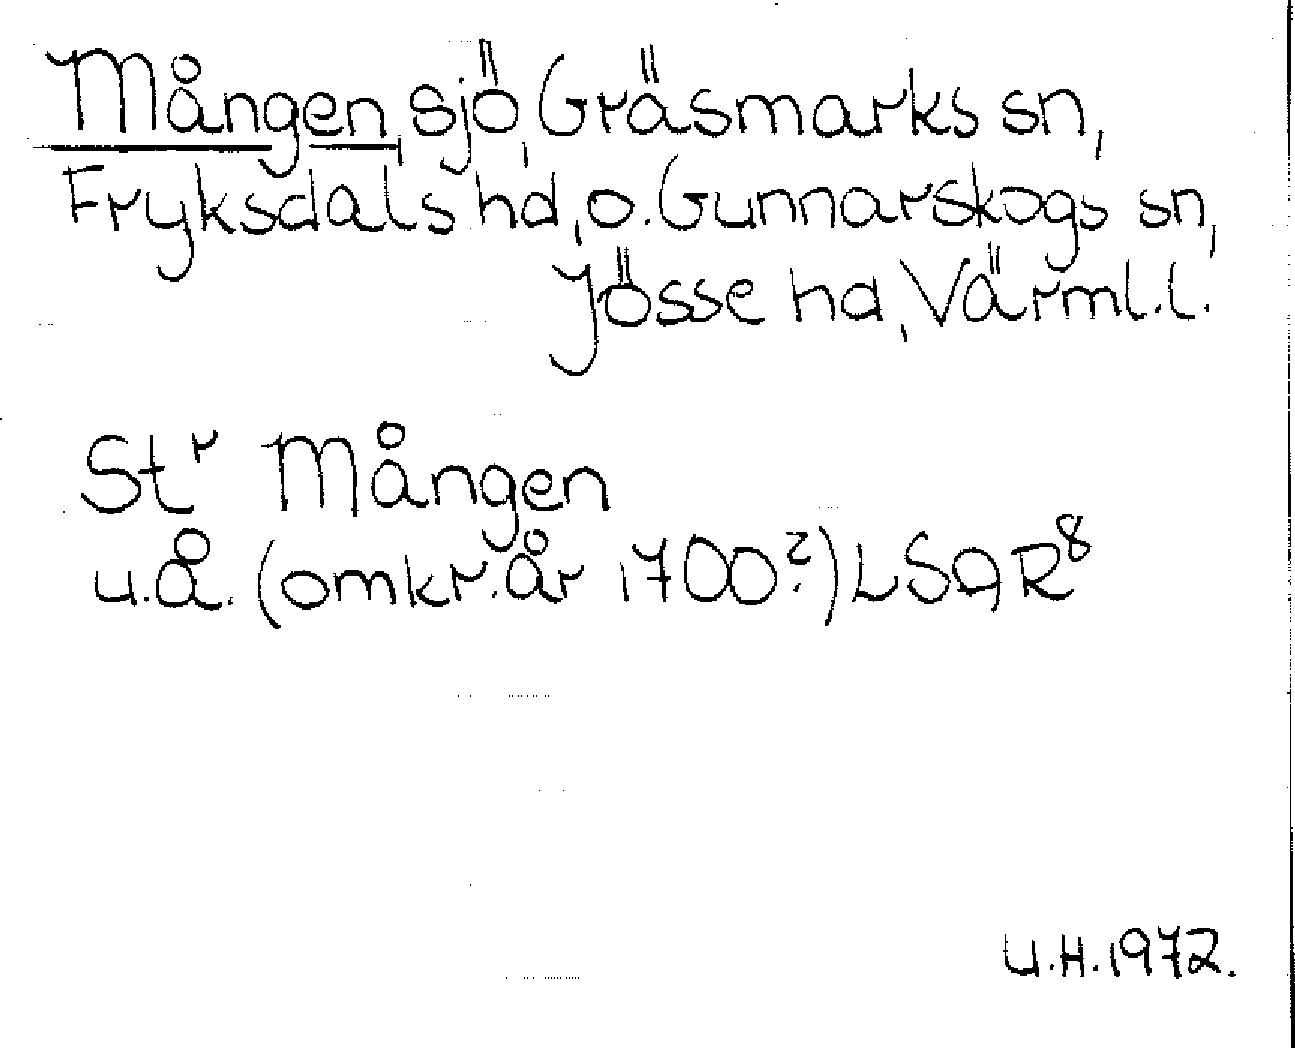 Mången, sjö, Gräsmarks sn,
Fryksdals hd, o. Gunnarskogs sn,
Jösse hd, Värml.l.
Stʳ Mången
u.å. (omkr. år 1700?) LSAR⁸
U.H. 1972.